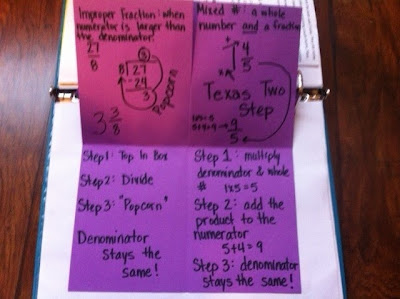 Improper Fraction: when
numerator is larger than
the denominator.
27
8
3
8 27
-24
3
Popcorn
3 3
8
Mixed #: a whole
number and a fraction
+
1 4
x 5
Texas Two
Step
1x5=5
5+4=9 → 9
5
Step 1: Top In Box
Step 2: Divide
Step 3: "Popcorn"
Denominator
Stays the
same!
Step 1: multiply
denominator & whole
# 1x5=5
Step 2: add the
product to the
numerator
5+4=9
Step 3: denominator
stays the same!